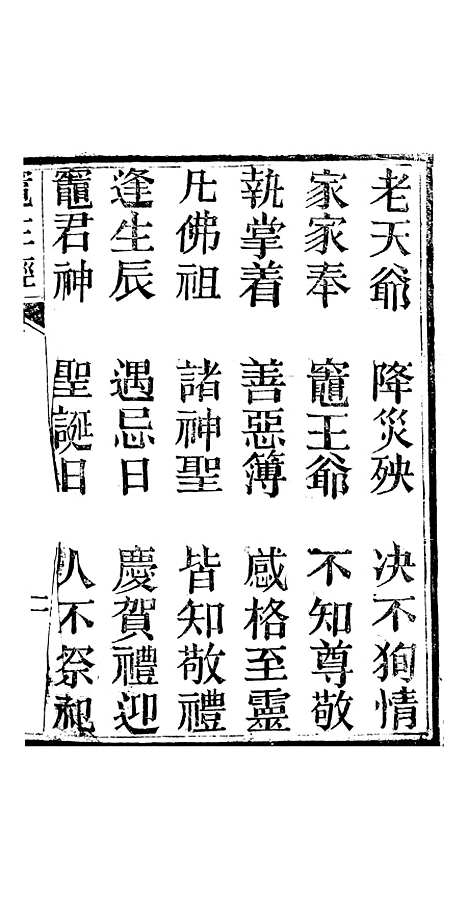 老天爺 降災殃 决不狥情
家家奉 竈王爺 不知尊敬
執掌着 善惡簿 感格至靈
凡佛祖 諸神聖 皆知敬禮
逢生辰 遇忌日 慶賀禮迎
竈君神 聖誕日 人不祭祀
竈王經 二